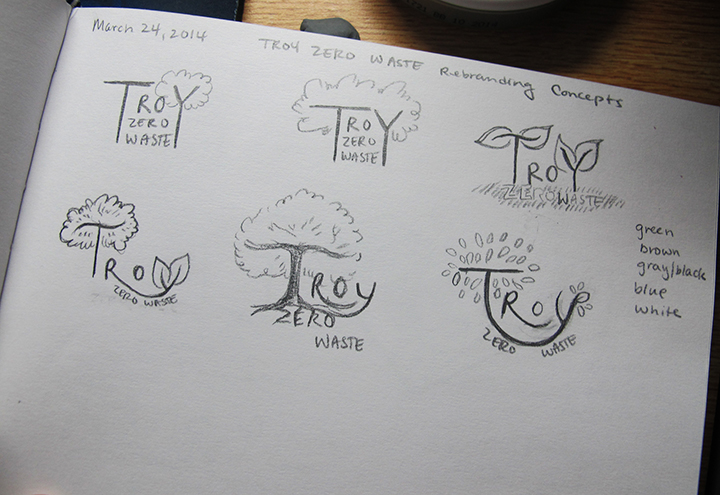 March 24, 2014
TROY ZERO WASTE Rebranding Concepts
TROY
ZERO
WASTE
TROY
ZERO
WASTE
TROY
ZERO WASTE
TROY
ZERO WASTE
TROY
ZERO
WASTE
TROY
ZERO WASTE
green
brown
gray/black
blue
white